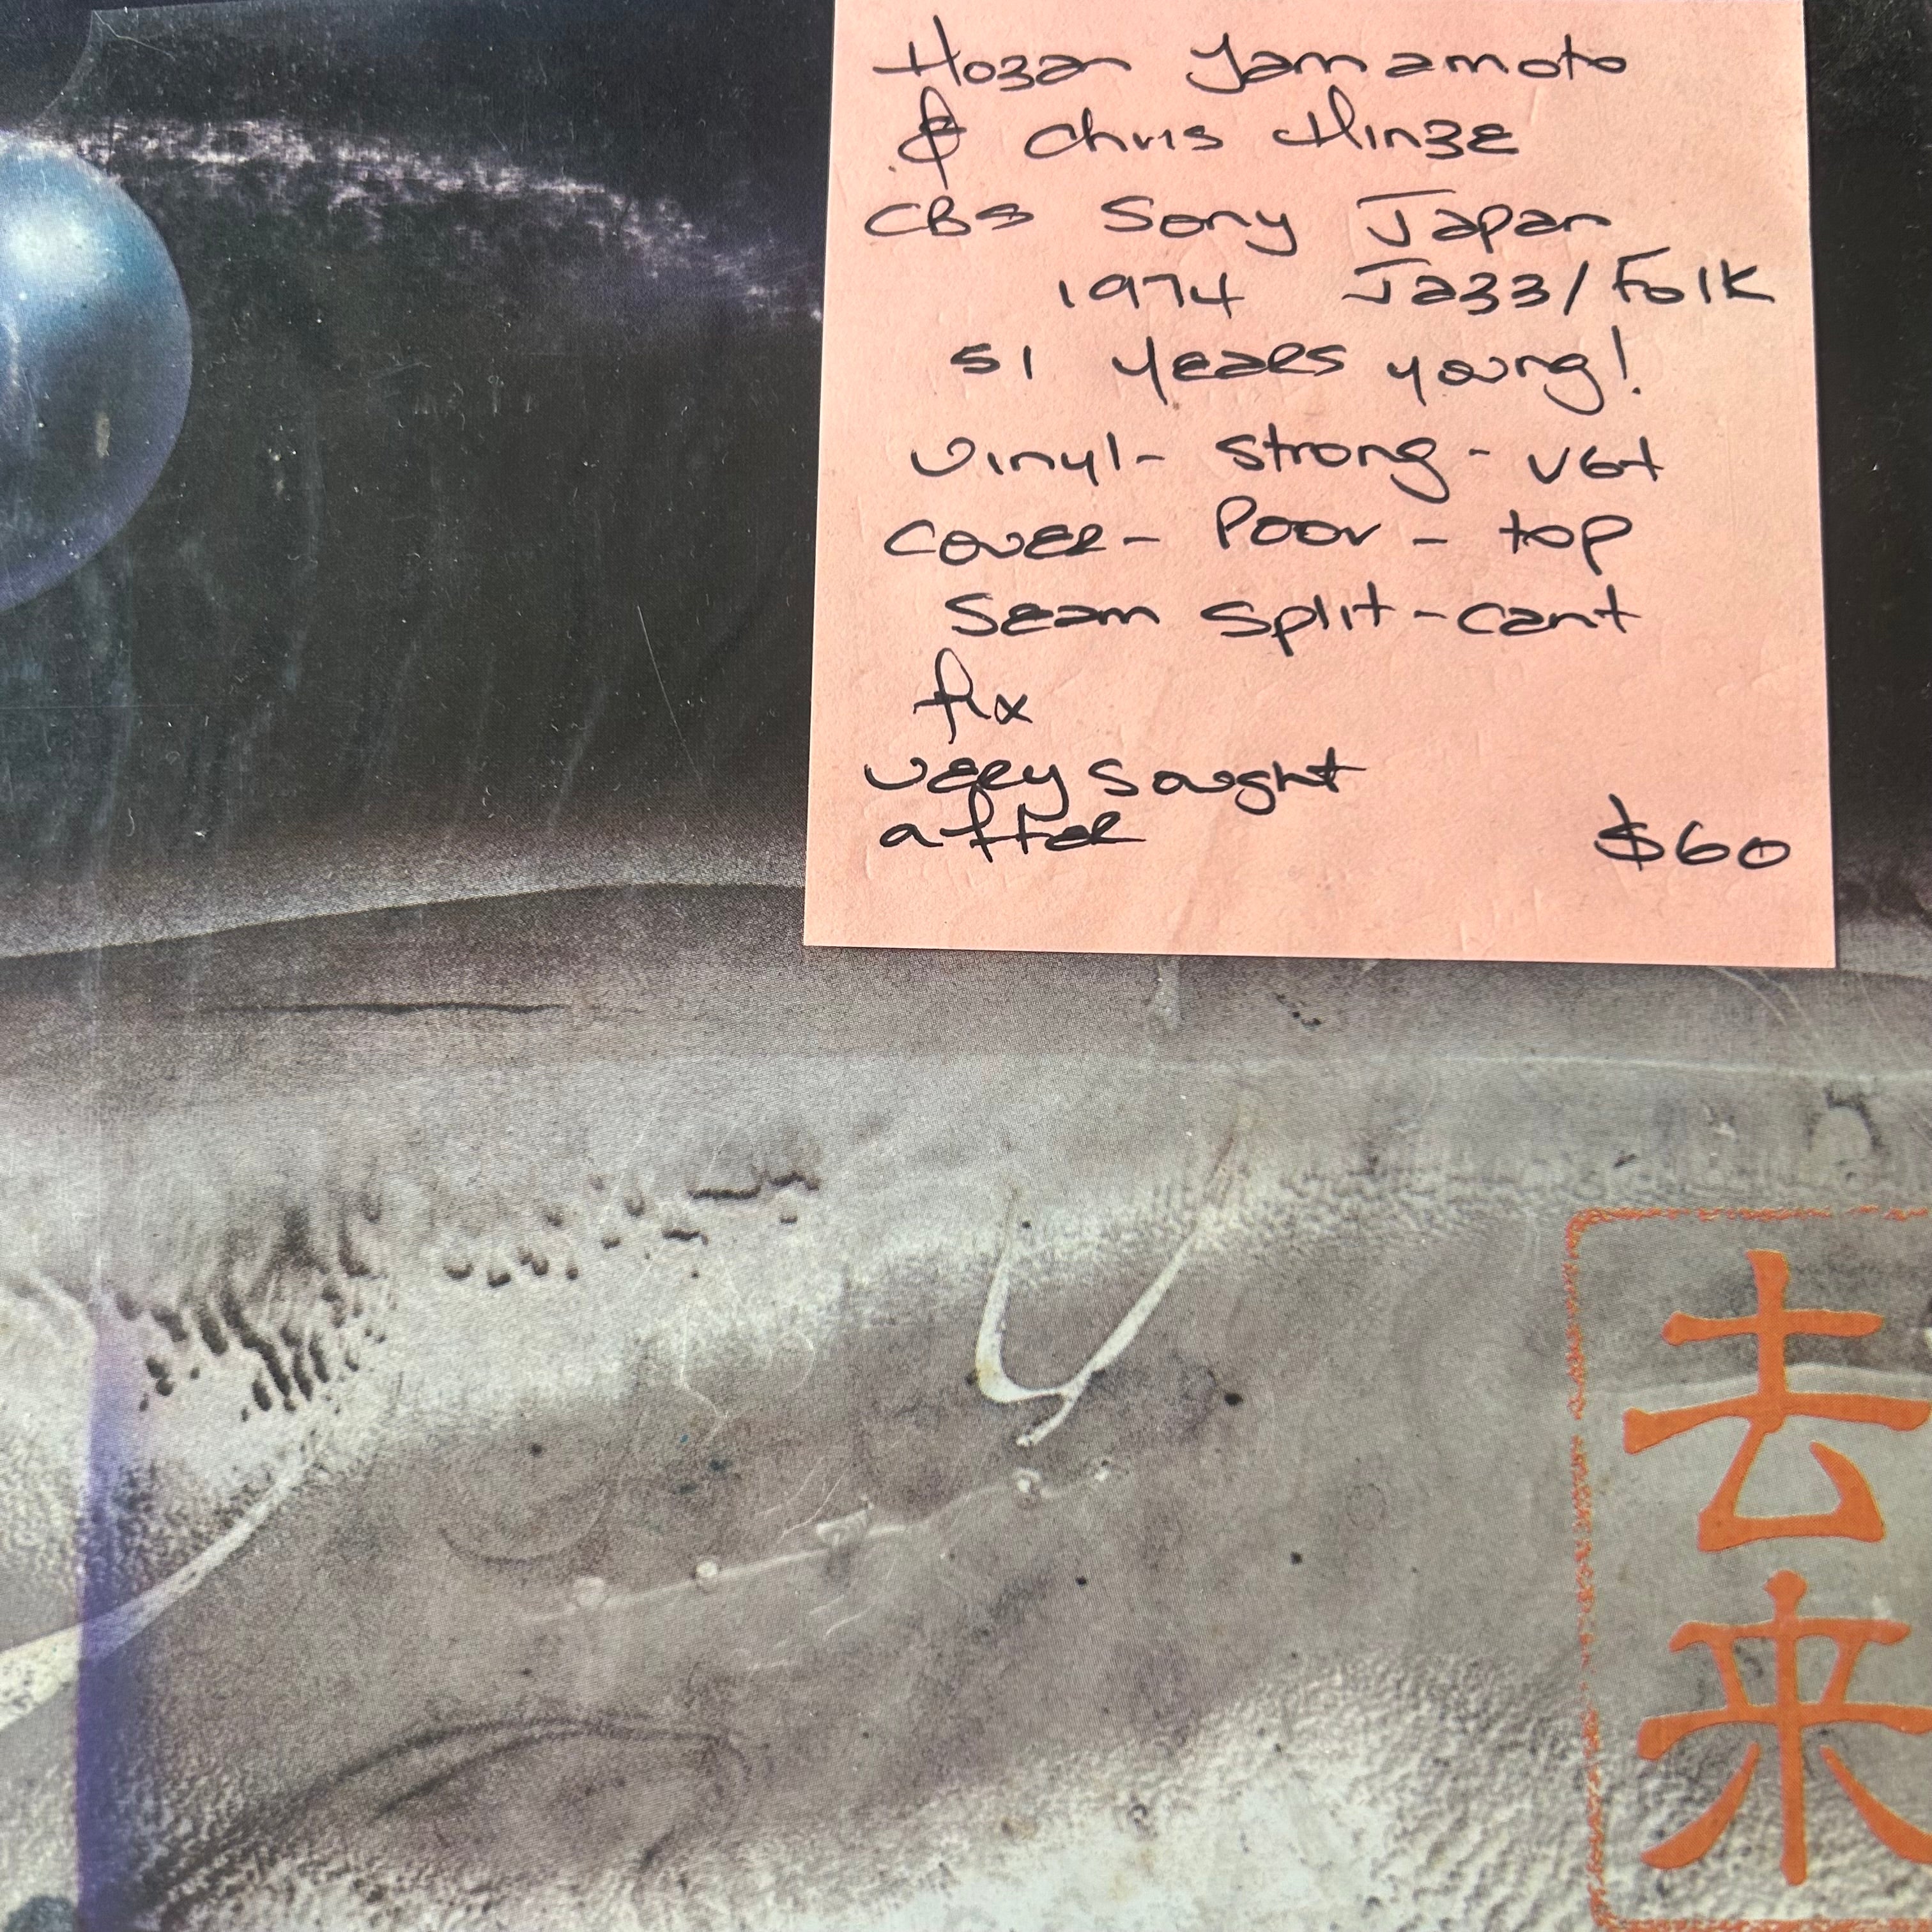 Hozan Yamamoto
& Chris Hinze
CBS Sony Japan
1974 Jazz/Folk
51 years young!
Vinyl- Strong - VG+
Cover - Poor - top
Seam Split - cant
fix
very sought
after $60
去
来